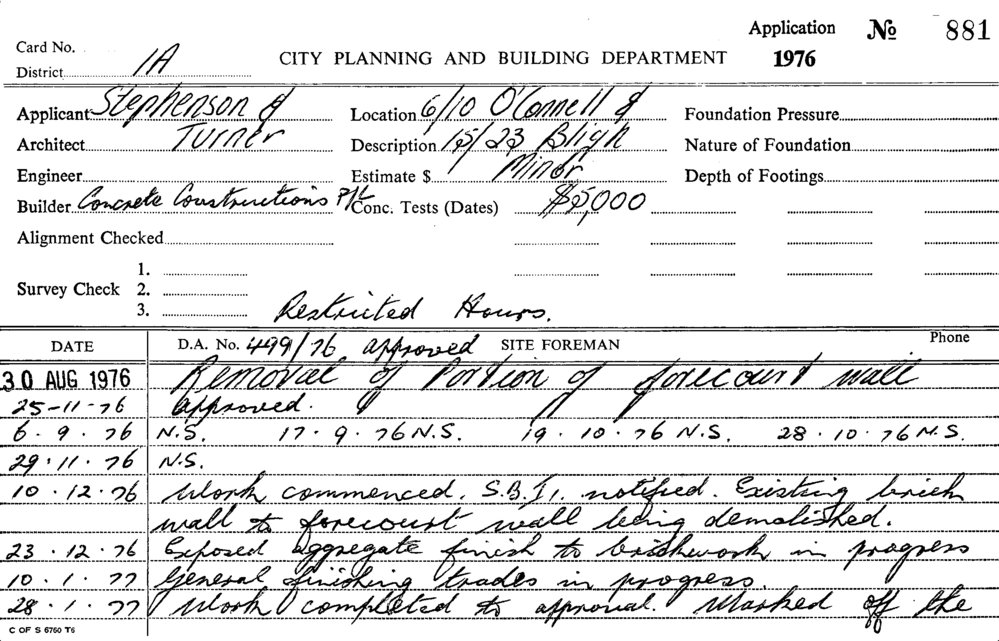 Application № 881
Card No.
District 1A CITY PLANNING AND BUILDING DEPARTMENT 1976
Applicant Stephenson & Location 6/10 O'Connell & Foundation Pressure
Architect Turner Description 15/23 Bligh Nature of Foundation
Engineer Estimate $ Minor Depth of Footings
Builder Concrete Constructions P/L Conc. Tests (Dates) $5,000
Alignment Checked
1.
Survey Check 2.
3. Restricted Hours.
DATE D.A. No. 499/76 approved SITE FOREMAN Phone
30 AUG 1976 Removal of Portion of forecourt wall
25-11-76 Approved.
6.9.76 N.S. 17.9.76 N.S. 19.10.76 N.S. 28.10.76 N.S.
29.11.76 N.S.
10.12.76 Work commenced. S.B.I. notified. Existing brick
wall to forecourt wall being demolished.
23.12.76 Exposed aggregate finish to brickwork in progress
10.1.77 General finishing trades in progress.
28.1.77 Work completed to approval. Marked off the
C OF S 6750 T6